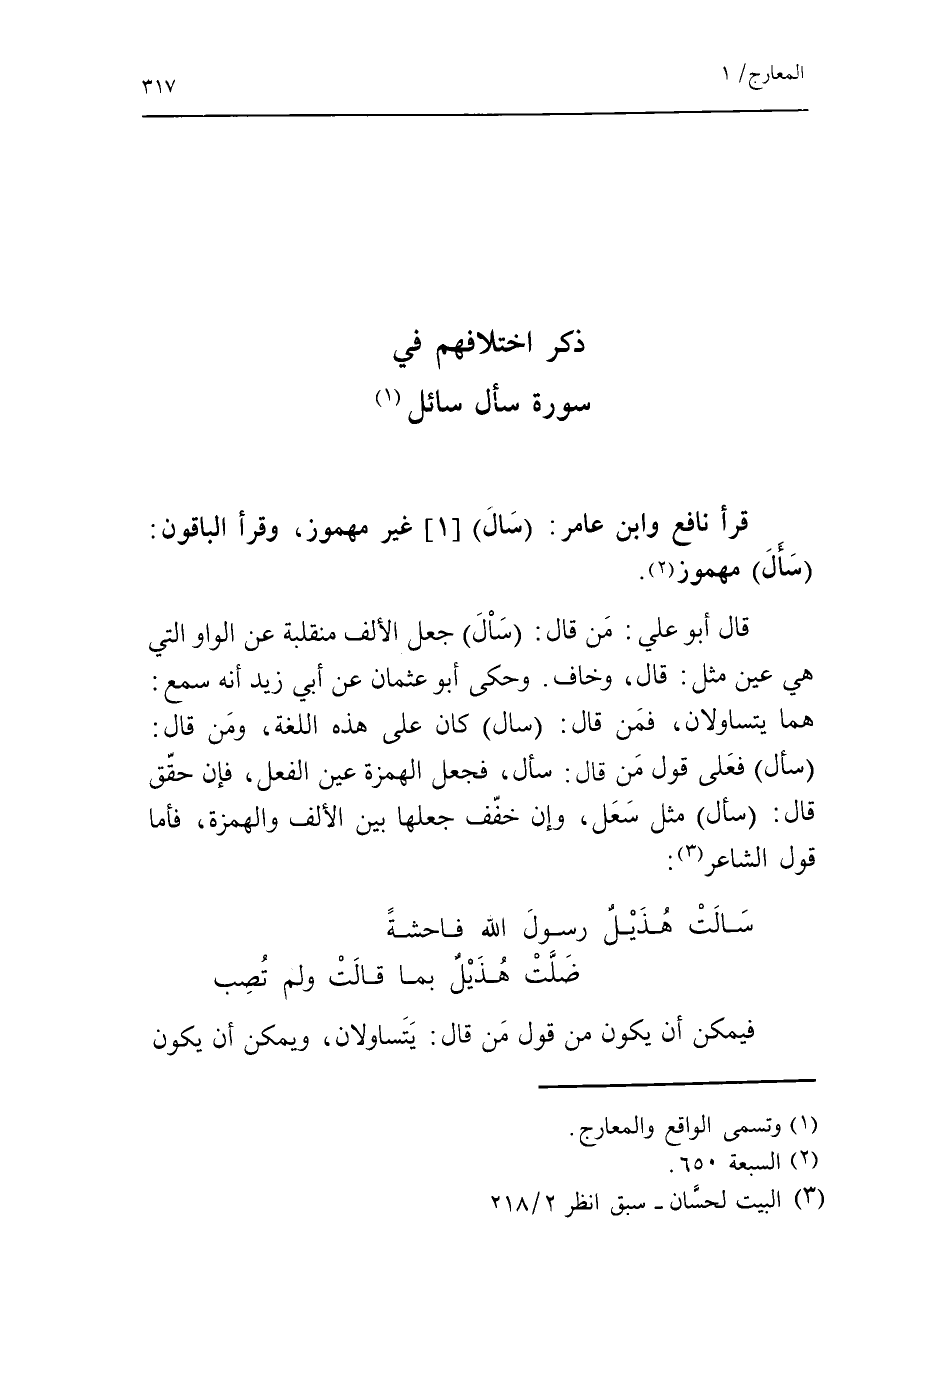 المعارج/ ١
٣١٧
ذكر اختلافهم في
سورة سأل سائل(١)
قرأ نافع وابن عامر: (سَالَ) [١] غير مهموز، وقرأ الباقون:
(سَأَلَ) مهموز(٢).
قال أبو علي: مَن قال: (سَاْلَ) جعل الألف منقلبة عن الواو التي
هي عين مثل: قال، وخاف. وحكى أبو عثمان عن أبي زيد أنه سمع:
هما يتساولان، فمَن قال: (سال) كان على هذه اللغة، ومَن قال:
(سأل) فعَلى قول مَن قال: سأل، فجعل الهمزة عين الفعل، فإن حقّق
قال: (سأل) مثل سَعَل، وإن خفّف جعلها بين الألف والهمزة، فأما
قول الشاعر(٣):
سَالَتْ هُذَيْلٌ رسولَ الله فاحشةً
ضَلَّتْ هُذَيْلٌ بما قالَتْ ولم تُصِب
فيمكن أن يكون من قول مَن قال: يَتَساولان، ويمكن أن يكون
(١) وتسمى الواقع والمعارج.
(٢) السبعة ٦٥٠.
(٣) البيت لحسَّان ـ سبق انظر ٢/ ٢١٨